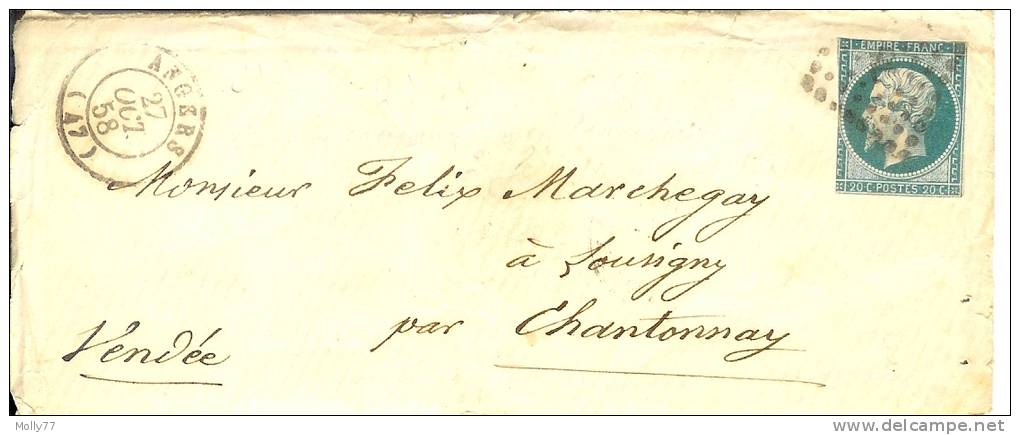 ANGERS
27
OCT.
58
(47)
EMPIRE FRANC
20 C POSTES 20 C
Monsieur Felix Marchegay
à Lousigny
par Chantonnay
Vendée
Molly77
www.delcampe.net